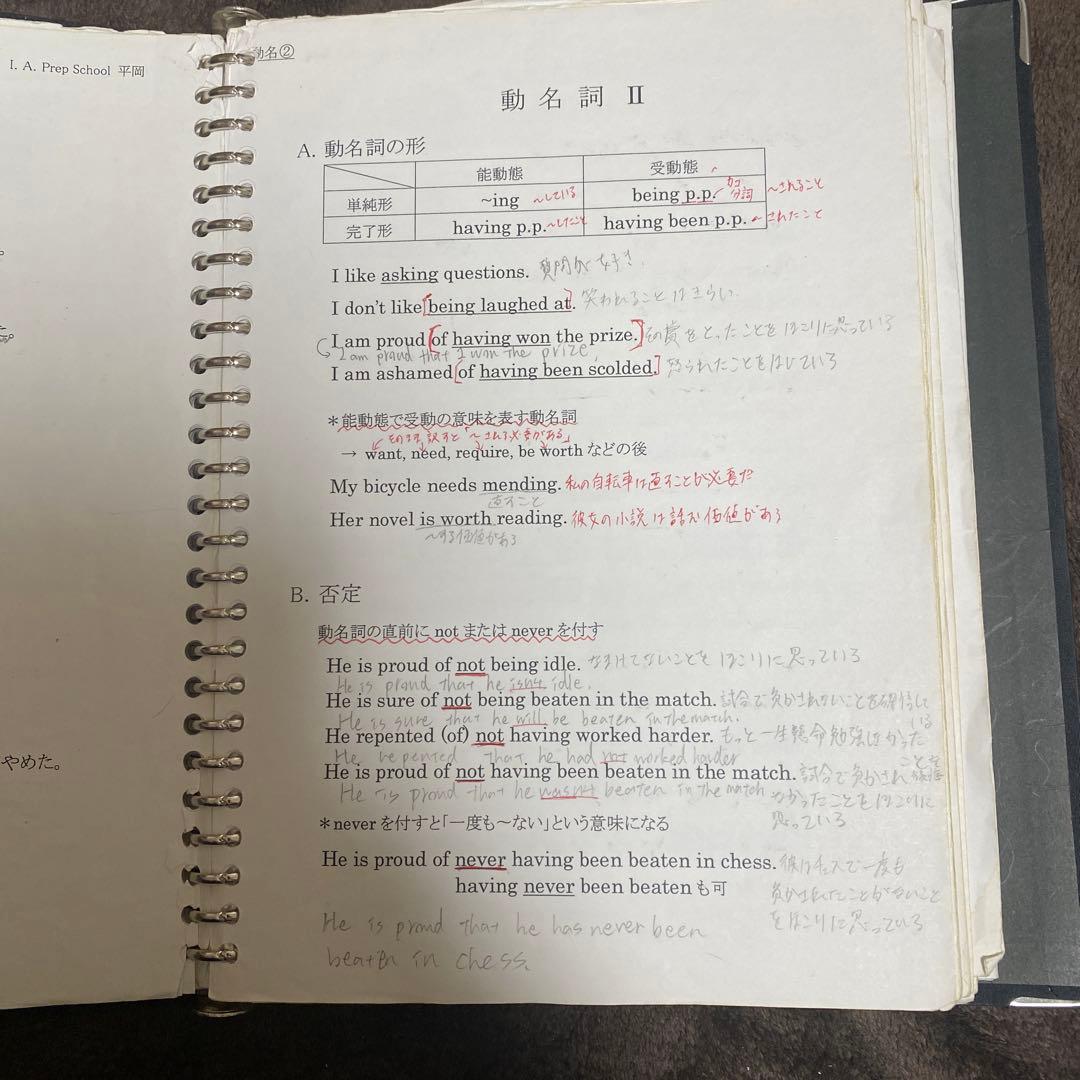 I. A. Prep School 平岡
。
た。
やめた。
動名②
動 名 詞 Ⅱ
A. 動名詞の形
能動態 受動態
単純形 ~ing 〜している being p.p. カコ分詞 〜されること
完了形 having p.p. 〜したこと having been p.p. 〜されたこと
I like asking questions. 質問が好き.
I don't like being laughed at. 笑われることはきらい.
I am proud of having won the prize. その賞をとったことをほこりに思っている
I am proud that I won the prize.
I am ashamed of having been scolded. 怒られたことをはじている
*能動態で受動の意味を表す動名詞
そのまま訳すと「〜される必要がある」
→ want, need, require, be worth などの後
My bicycle needs mending. 私の自転車は直すことが必要だ
直すこと
Her novel is worth reading. 彼女の小説は読む価値がある
〜する価値がある
B. 否定
動名詞の直前に not または never を付す
He is proud of not being idle. なまけてないことをほこりに思っている
He is proud that he isn't idle.
He is sure of not being beaten in the match. 試合で負かされないことを確信している
He is sure that he will be beaten in the match.
He repented (of) not having worked harder. もっと一生懸命勉強しなかったことを
He repented that he had not worked harder
He is proud of not having been beaten in the match. 試合で負かされなかったことをほこりに思っている
He is proud that he wasn't beaten in the match
*never を付すと「一度も〜ない」という意味になる
He is proud of never having been beaten in chess. 彼はチェスで一度も
having never been beaten も可 負かされたことがないこと
をほこりに思っている
He is proud that he has never been
beaten in chess.